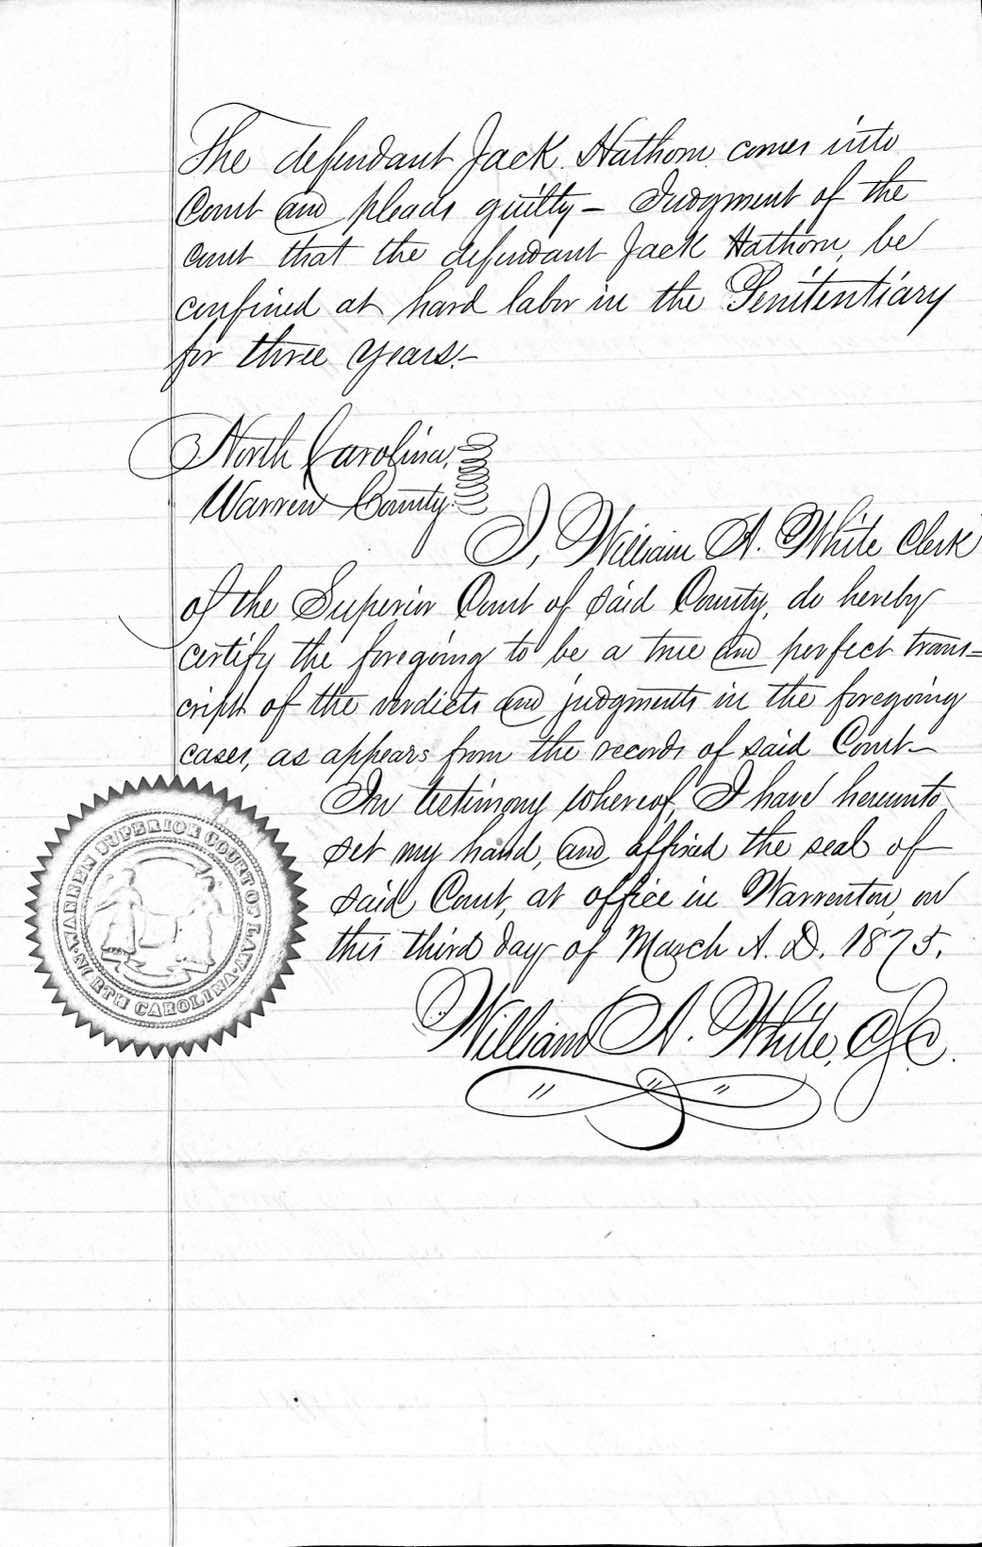 The defendant Jack Hathorn comes into
Court and pleads guilty — Judgment of the
court that the defendant Jack Hathorn, be
confined at hard labor in the Penitentiary
for three years.—
North Carolina,
Warren County.
I, William A. White Clerk
of the Superior Court of said County, do hereby
certify the foregoing to be a true and perfect trans=
cript of the verdicts and judgments in the foregoing
cases, as appears from the records of said Court—
In testimony whereof, I have hereunto
set my hand, and affixed the seal of
said Court, at office in Warrenton, on
this third day of March A. D. 1875.
William A. White, C.S.C.
WARREN SUPERIOR COURT OF LAW
NORTH CAROLINA